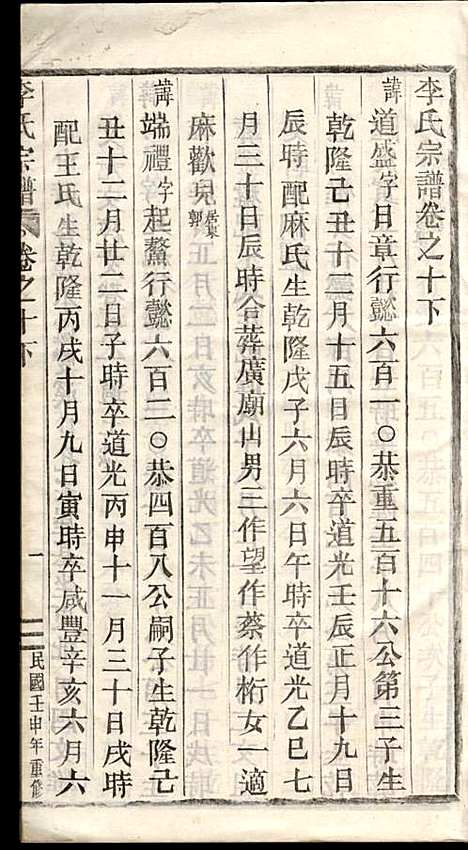 李氏宗譜卷之十下
諱道盛字日章行懿六百一〇恭重五百十六公第三子生
乾隆己丑十二月十五日辰時卒道光壬辰正月十九日
辰時配麻氏生乾隆戊子六月六日午時卒道光乙巳七
月三十日辰時合葬廣廟山男三作望作蔡作桁女一適
麻歡兒居東郭
諱端禮字起鰲行懿六百二〇恭四百八公嗣子生乾隆己
丑十二月廿二日子時卒道光丙申十一月三十日戌時
配王氏生乾隆丙戌十月九日寅時卒咸豐辛亥六月六
李氏宗譜 卷之十下
一
民國壬申年重修